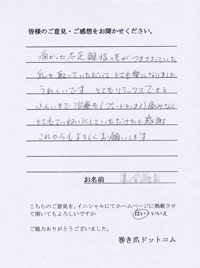 皆様のご意見・ご感想をお聞かせください。
痛かった右足親指の爪がつきささっていた
爪を取っていただいてとても楽になりました
うれしいです。とてもリラックスできる
ふんいきで治療も(プレートをはる)痛みなく
とてもていねいにしていただけたと感謝
これからもよろしくお願いします
お名前
こちらのご意見を、イニシャルにてホームページに掲載させ
て頂いてもよろしいですか はい・いいえ
ご協力ありがとうございました。
巻き爪ドットコム